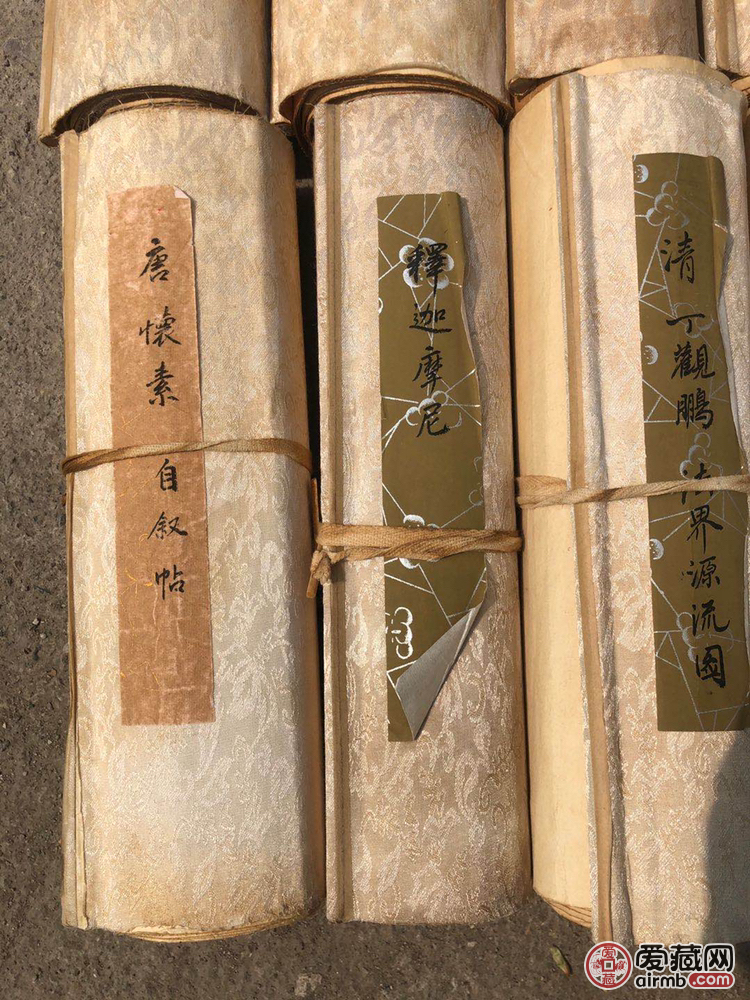 唐 懷素 自叙帖
釋迦摩尼
清 丁觀鵬 法界源流图
爱藏网
airmb.com